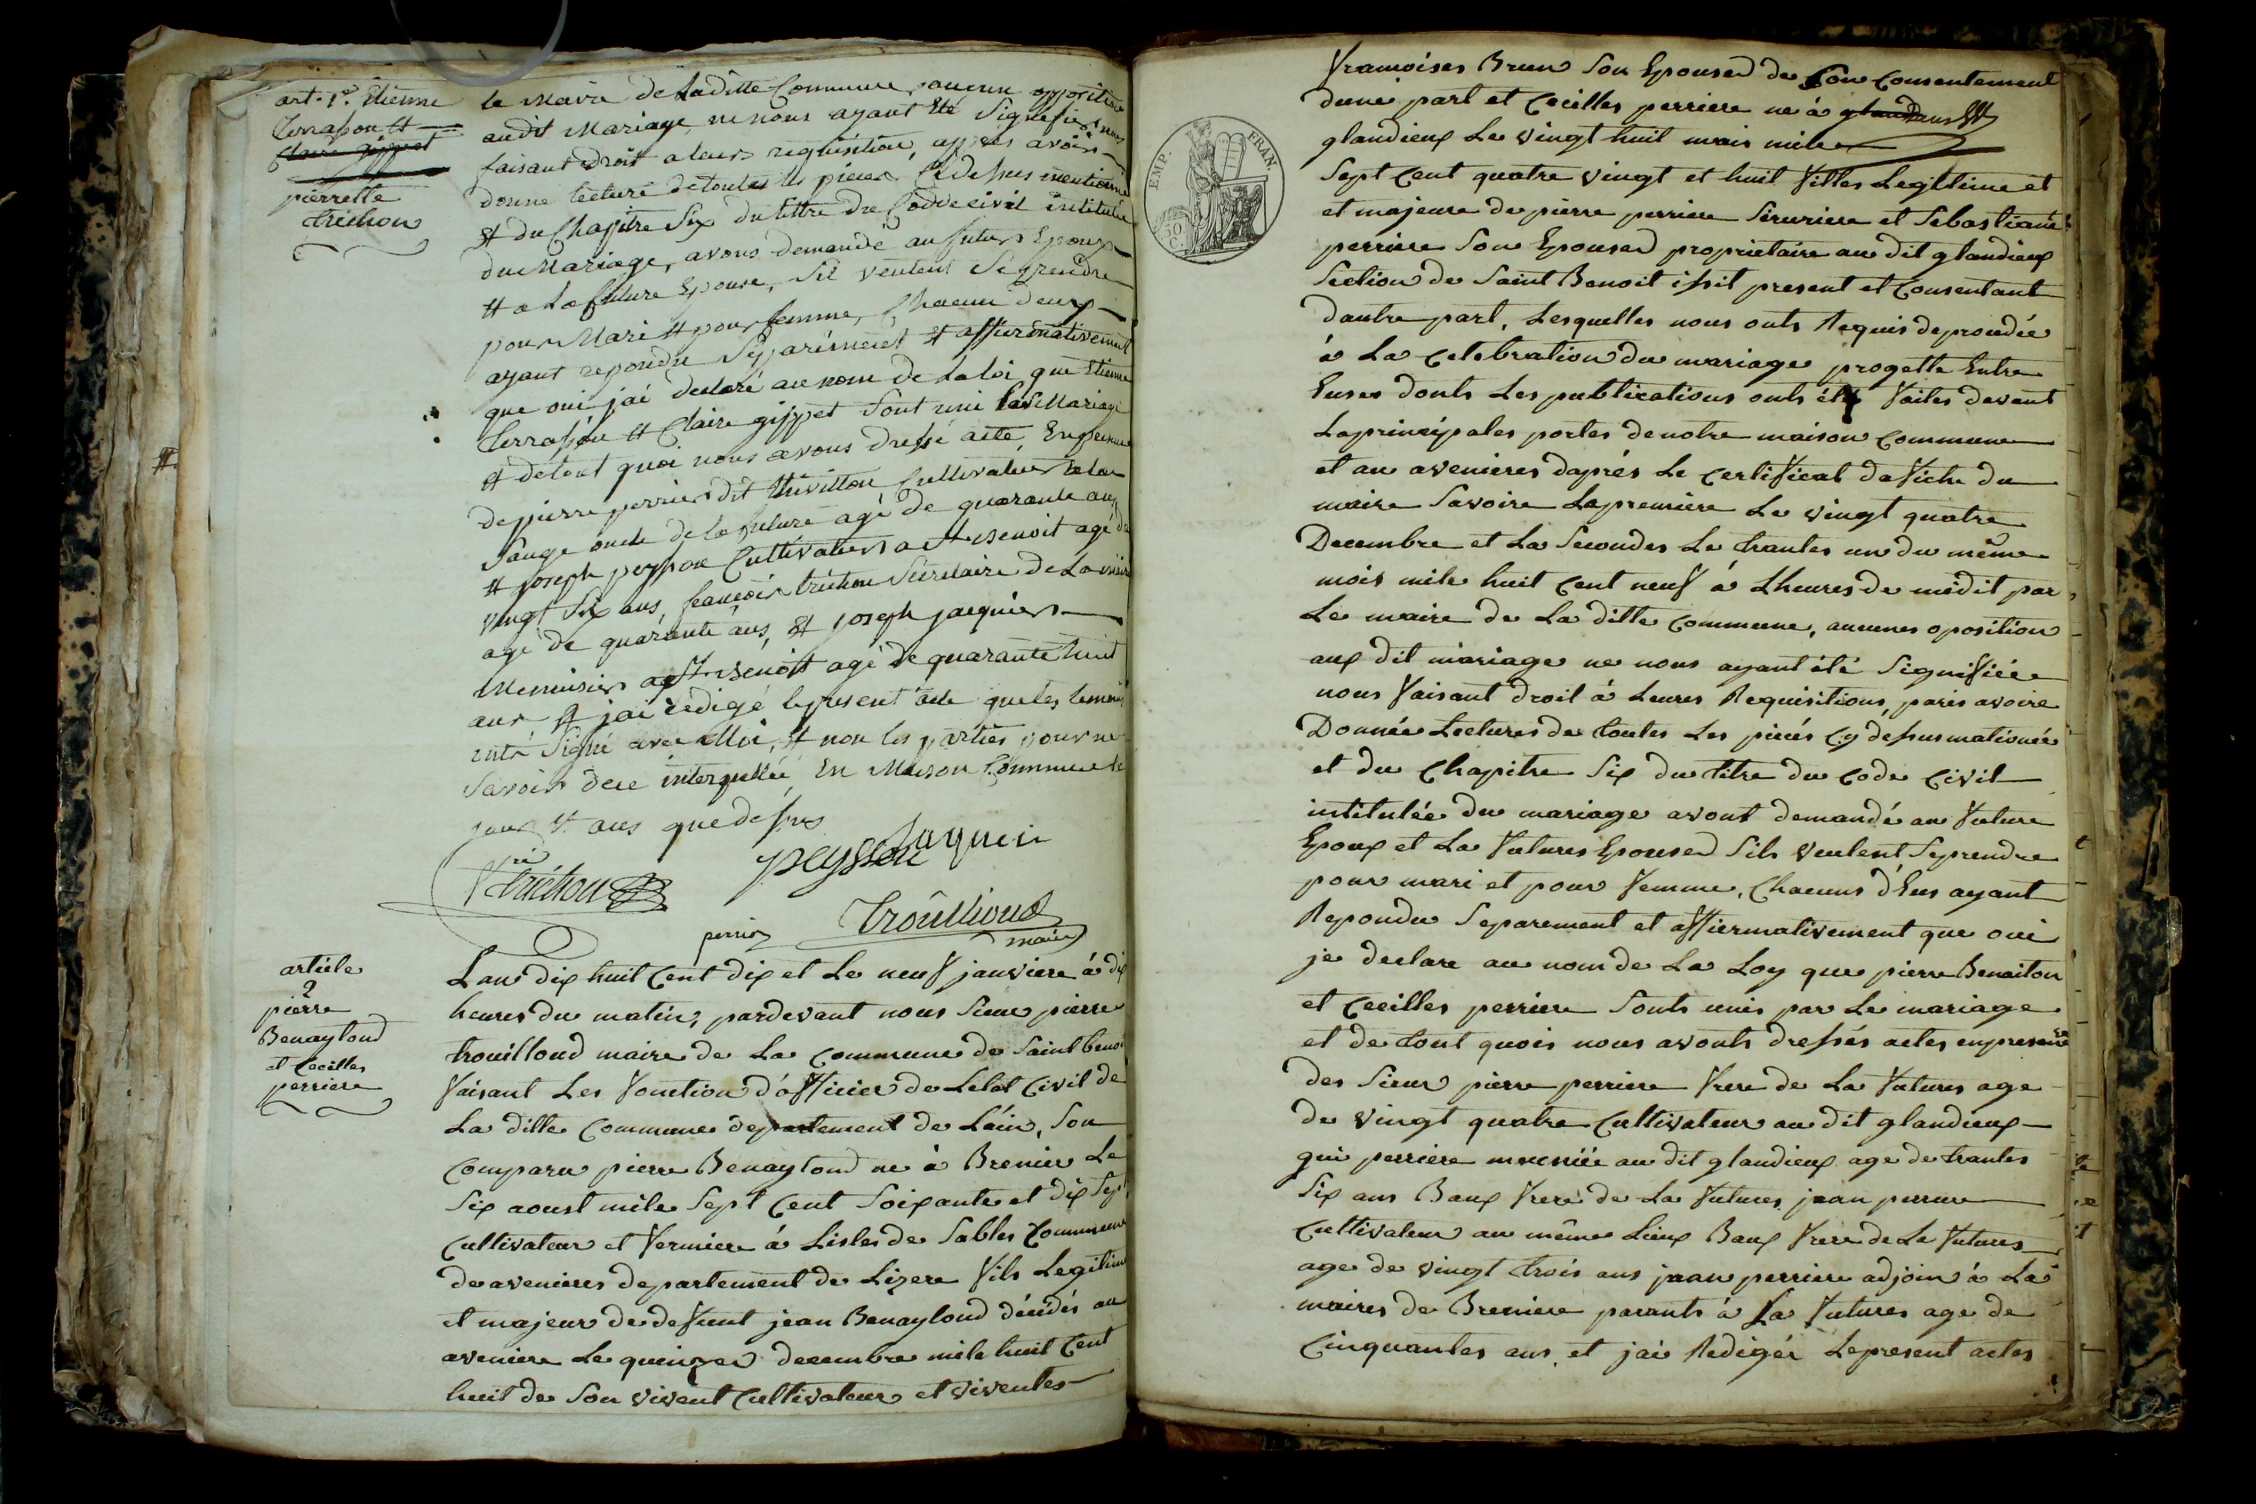 art. 1er. Etienne
Terrasson et
Claire gippet
pierrette
trichon
le Maire de Laditte Commune, aucune opposition
audit Mariage, ne nous ayant été Signifiée, nous
faisant droit a leurs requisition, apprès avoir
donné lecture de toutes les pièces Cy dessus mentionné
et du Chapitre Six du tittre du Codde civil intitulé
du Mariage, avons demandé au futur Epoux
et a La future Epouse, Sil veulent Se prendre
pour Mari et pour femme, Chacun deux
ayant repondu Séparément et affirmativement
que oui, jai declaré au nom de La loi que Etienne
Terrasson et Claire gippet Sont uni par Mariage
et detout quoi nous avons dressé acte, En presence
de pierre perrier dit Cultivateur
oncle de la future agé de quarante ans
et joseph peysson Cultivateur a St. Benoit agé de
vingt Six ans, françois trichon Sécrétaire de La mairie
agé de quarante ans, et joseph jacquier
Menuisier a St. Benoit agé de quarante huit
ans et jai rédigé le present acte que les temoins
ont Signé avec Moi, et non les parties pour ne
Savoir dece interpellée En Maison Commune le
jour et ans que dessus
jaquier
peysson
trichon
trouilloud
perrier
maire
article
2
pierre
Benaytond
et Cecilles
perriere
Lan dix huit Cent dix et Le neuf janviere à dix
heures du matin, pardevant nous Sieur pierre
trouilloud maire de La Commune de Saint benoit
faisant Les fonction d'officier de Letat Civil de
La ditte Commune departement de Láin, Son
Comparu pierre Benaytond ne à Brenier Le
Six aoust mile Sept Cent Soixante et dix Sept
Cultivateur et fermiere à Lisles de Sables Commune
de avenieres departement de Lizere fils Legitime
et majeur de defeunt jean Benaytond décédés au
aveniere Le quinzes decembre mile huit Cent
huit de Son vivent Cultivateur et viventes
EMP. FRAN.
50 C.
françoises Brun Son Epoused de Son Consentement
dune part et Cecilles perriere ne à
glandieux Le vingt huit mais mile
Sept Cent quatre vingt et huit filles Legitime et
et majeure de pierre perriere Seruriere et Sebastiane
perriere Son Epoused proprietaire au dit glandieux
Section de Saint Benoit issit present et Consentant
dautre part, Lesquelles nous onts Requis de proudée
à La Celebration du mariage progette Entre
Euses donts Les publications onts été faites devant
La principales portes de notre maison Commune
et au avenieres daprés Le Certificat dafiche du
maire Savoire La premiere Le vingt quatre
Decembre et La Secondes Le trantes un du même
mois mile huit Cent neuf à Lheures de midit par
Le maire de La ditte Commune, aucunes oposition
aux dit mariage ne nous ayant été Signifiée
nous faisant droit à Leures Requisitions, paris avoire
Donnée Lectures de toutes Les pieces Cy dessus mationée
et du Chapitre Six du titre du Code Civil
intitulée du mariage avont demandé au future
Epoux et La futures Epoused Sils veulent Seprendre
pour mari et pour femme, Chacuns d'Eus ayant
Repondu Separement et affiermativement que oui
je declare au nom de La Loy que pierre Benaiton
et Cecilles perriere Sonts unis par Le mariage
et de tout quois nous avonts dressés actes enpresence
des Sieur pierre perriere frere de La futures age
de vingt quatre Cultivateur au dit glandieux
gui perriere au dit glandieux age de trantes
Six ans Baux frere de La futures, jean perriere
Cultivateur au même Lieux Baux frere de La futures
age de vingt trois ans jean perriere adjoin à La
maires de Breniere parants à La futures age de
Cinquantes ans, et jai Redigér Lepresent actes